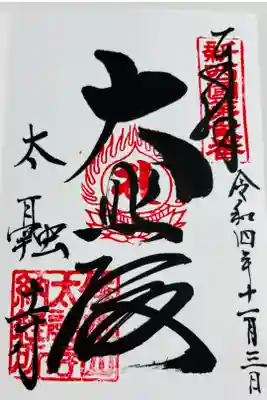 奉拝
令和四年十一月三日
大悲殿
太融寺